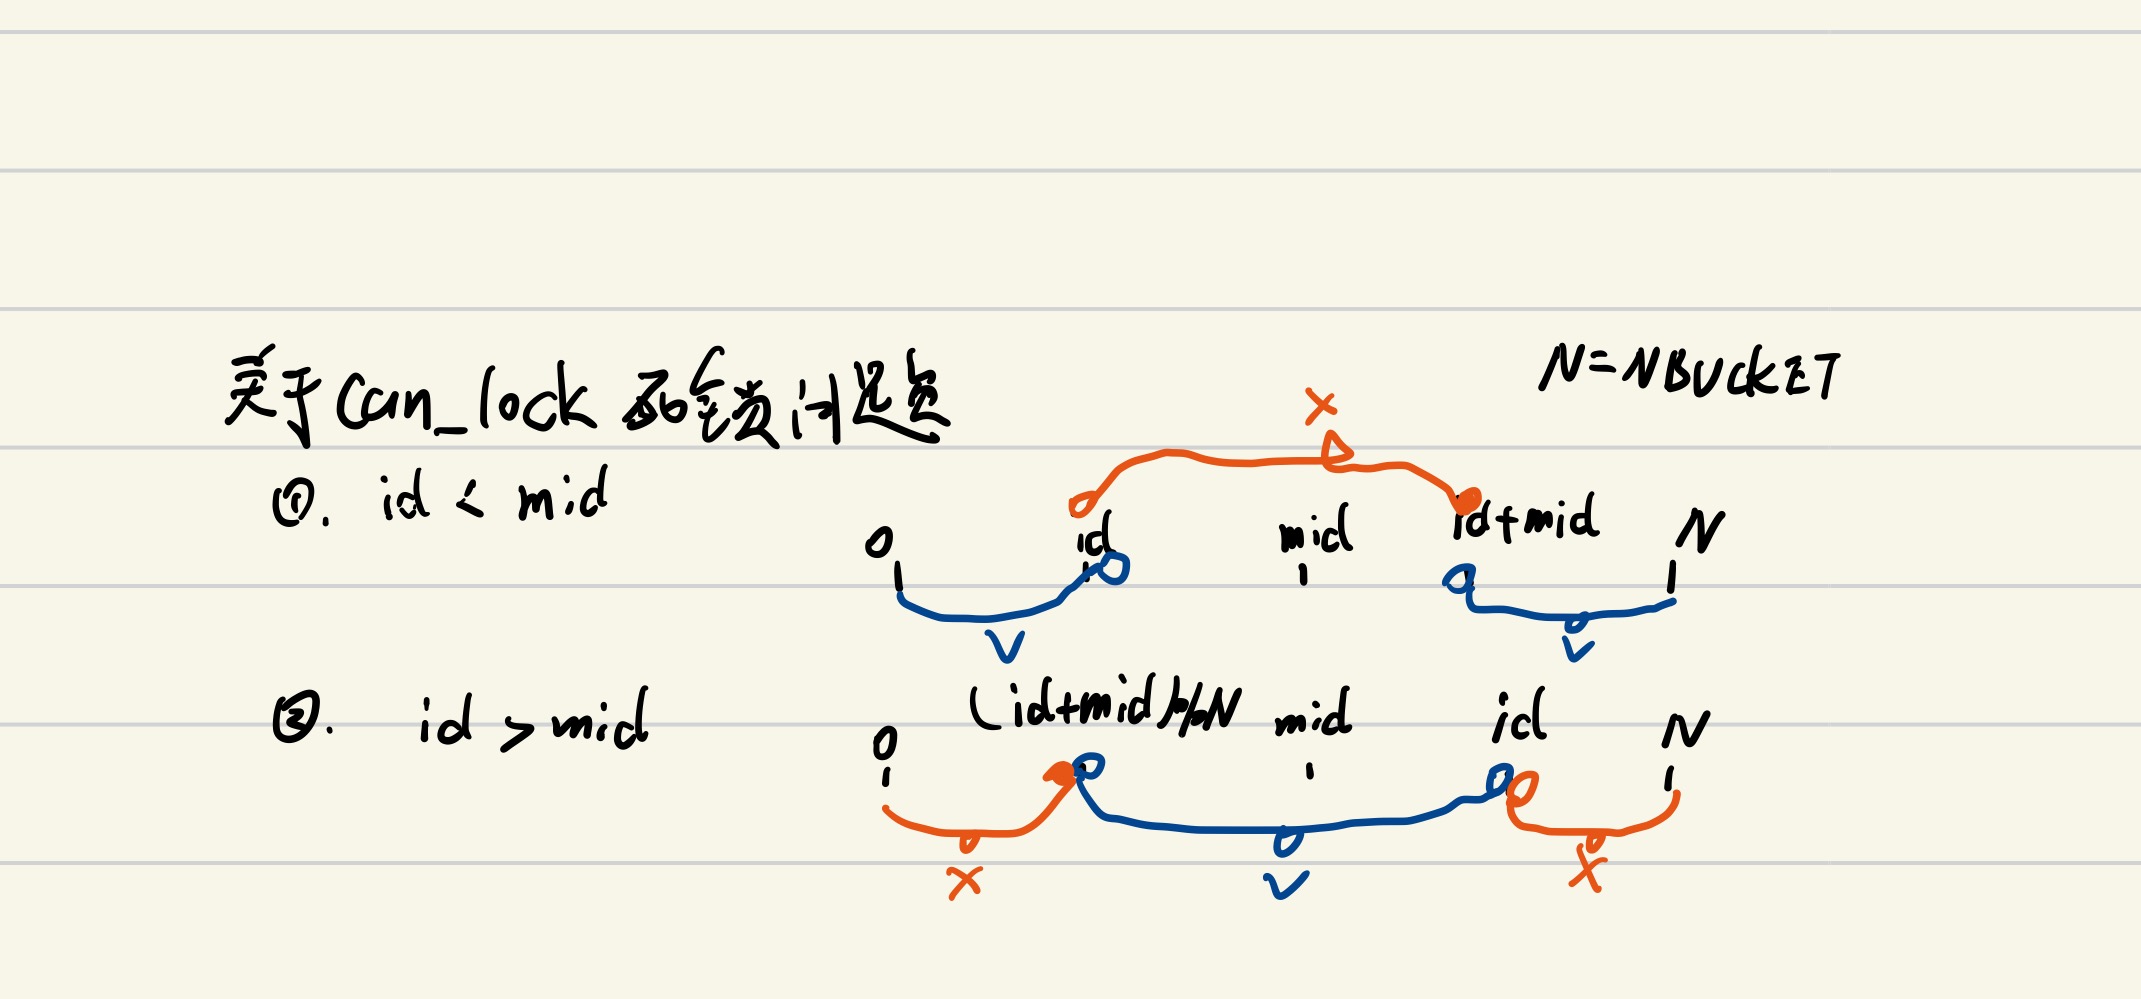 关于can_lock死锁问题
N=NBUCKET
×
①. id < mid
0 id mid id+mid N
②. id > mid
0 (id+mid)%N mid id N
× ×